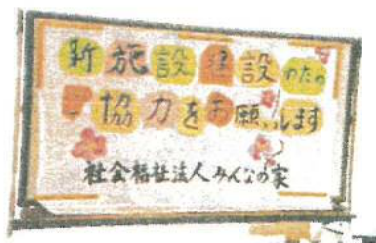 新施設建設のため
ご協力をお願いします
社会福祉法人みんなの家